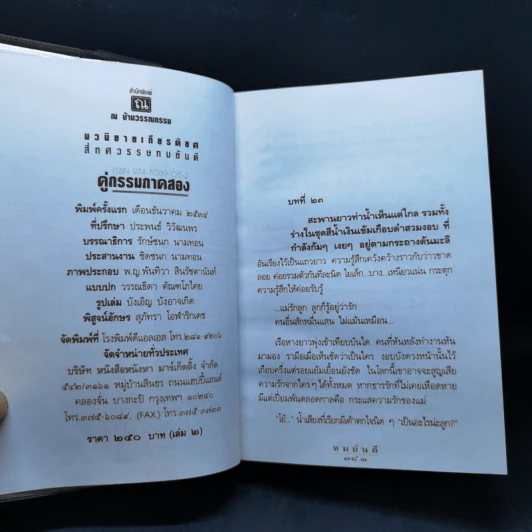 สำนักพิมพ์
ณ
ณ บ้านวรรณกรรม
นวนิยายเกียรติยศ
สี่ทศวรรษทมยันตี
ISBN 974-7039-05-2
คู่กรรมภาคสอง
พิมพ์ครั้งแรก เดือนธันวาคม ๒๕๓๔
ที่ปรึกษา ประพนธ์ วิวัฒนพร
บรรณาธิการ รักษ์ชนก นามทอน
ประสานงาน ชิตชนก นามทอน
ภาพประกอบ พ.ญ.พันทิวา สินรัชตานันท์
แบบปก วรรณธิดา ตัณฑโกไศย
รูปเล่ม บังเอิญ บังอาจเกิด
พิสูจน์อักษร สุภัทรา โอฬาริกเดช
จัดพิมพ์ที่ โรงพิมพ์ดีแอลเอส โทร.
จัดจำหน่ายทั่วประเทศ
บริษัท หนังสือหนังหา มาร์เก็ตติ้ง จำกัด
หมู่บ้านสินธร ถนนแฮปปี้แลนด์
คลองจั่น บางกะปิ กรุงเทพฯ ๑๐๒๔๐
โทร. (FAX.) โทร.
ราคา ๒๕๐ บาท (เล่ม ๒)
บทที่ ๒๓
สะพานยาวท่าน้ำเห็นแต่ไกล รวมทั้ง
ร่างในชุดสีน้ำเงินเข้มเกือบดำสวมงอบ ที่
กำลังก้มๆ เงยๆ อยู่ตามกระถางต้นมะลิ
อันเรียงไว้เป็นแถวยาว ความรู้สึกเคว้งคว้างราวกับว่าวขาด
ลอย ค่อยรวมตัวกันทีละนิด ใยเล็ก...บาง...เหนียวแน่น กระตุก
ความรู้สึกให้ค่อยรับรู้
...แม่รักลูก ลูกก็รู้อยู่ว่ารัก
คนอื่นสักหมื่นแสน ไม่แม้นเหมือน...
เรือหางยาวพุ่งเข้าเทียบบันได คนที่หันหลังทำงานหัน
มามอง รามือเมื่อเห็นชัดว่าเป็นใคร งอบบังดวงหน้านั้นไว้
เกือบครึ่งแต่รอยแย้มเยื้อนยังชัด ในโลกนี้เขาอาจจะสูญเสีย
ความรักจากใครๆ ได้ทั้งหมด หากธารรักที่ไม่เคยเหือดหาย
มีแต่เปี่ยมพ้นตลอดกาลคือ กระแสความรักของแม่
"โย้..." น้ำเสียงที่เรียกมีเค้าตกใจนิด ๆ "เป็นอะไรน่ะลูก?"
ทมยันตี